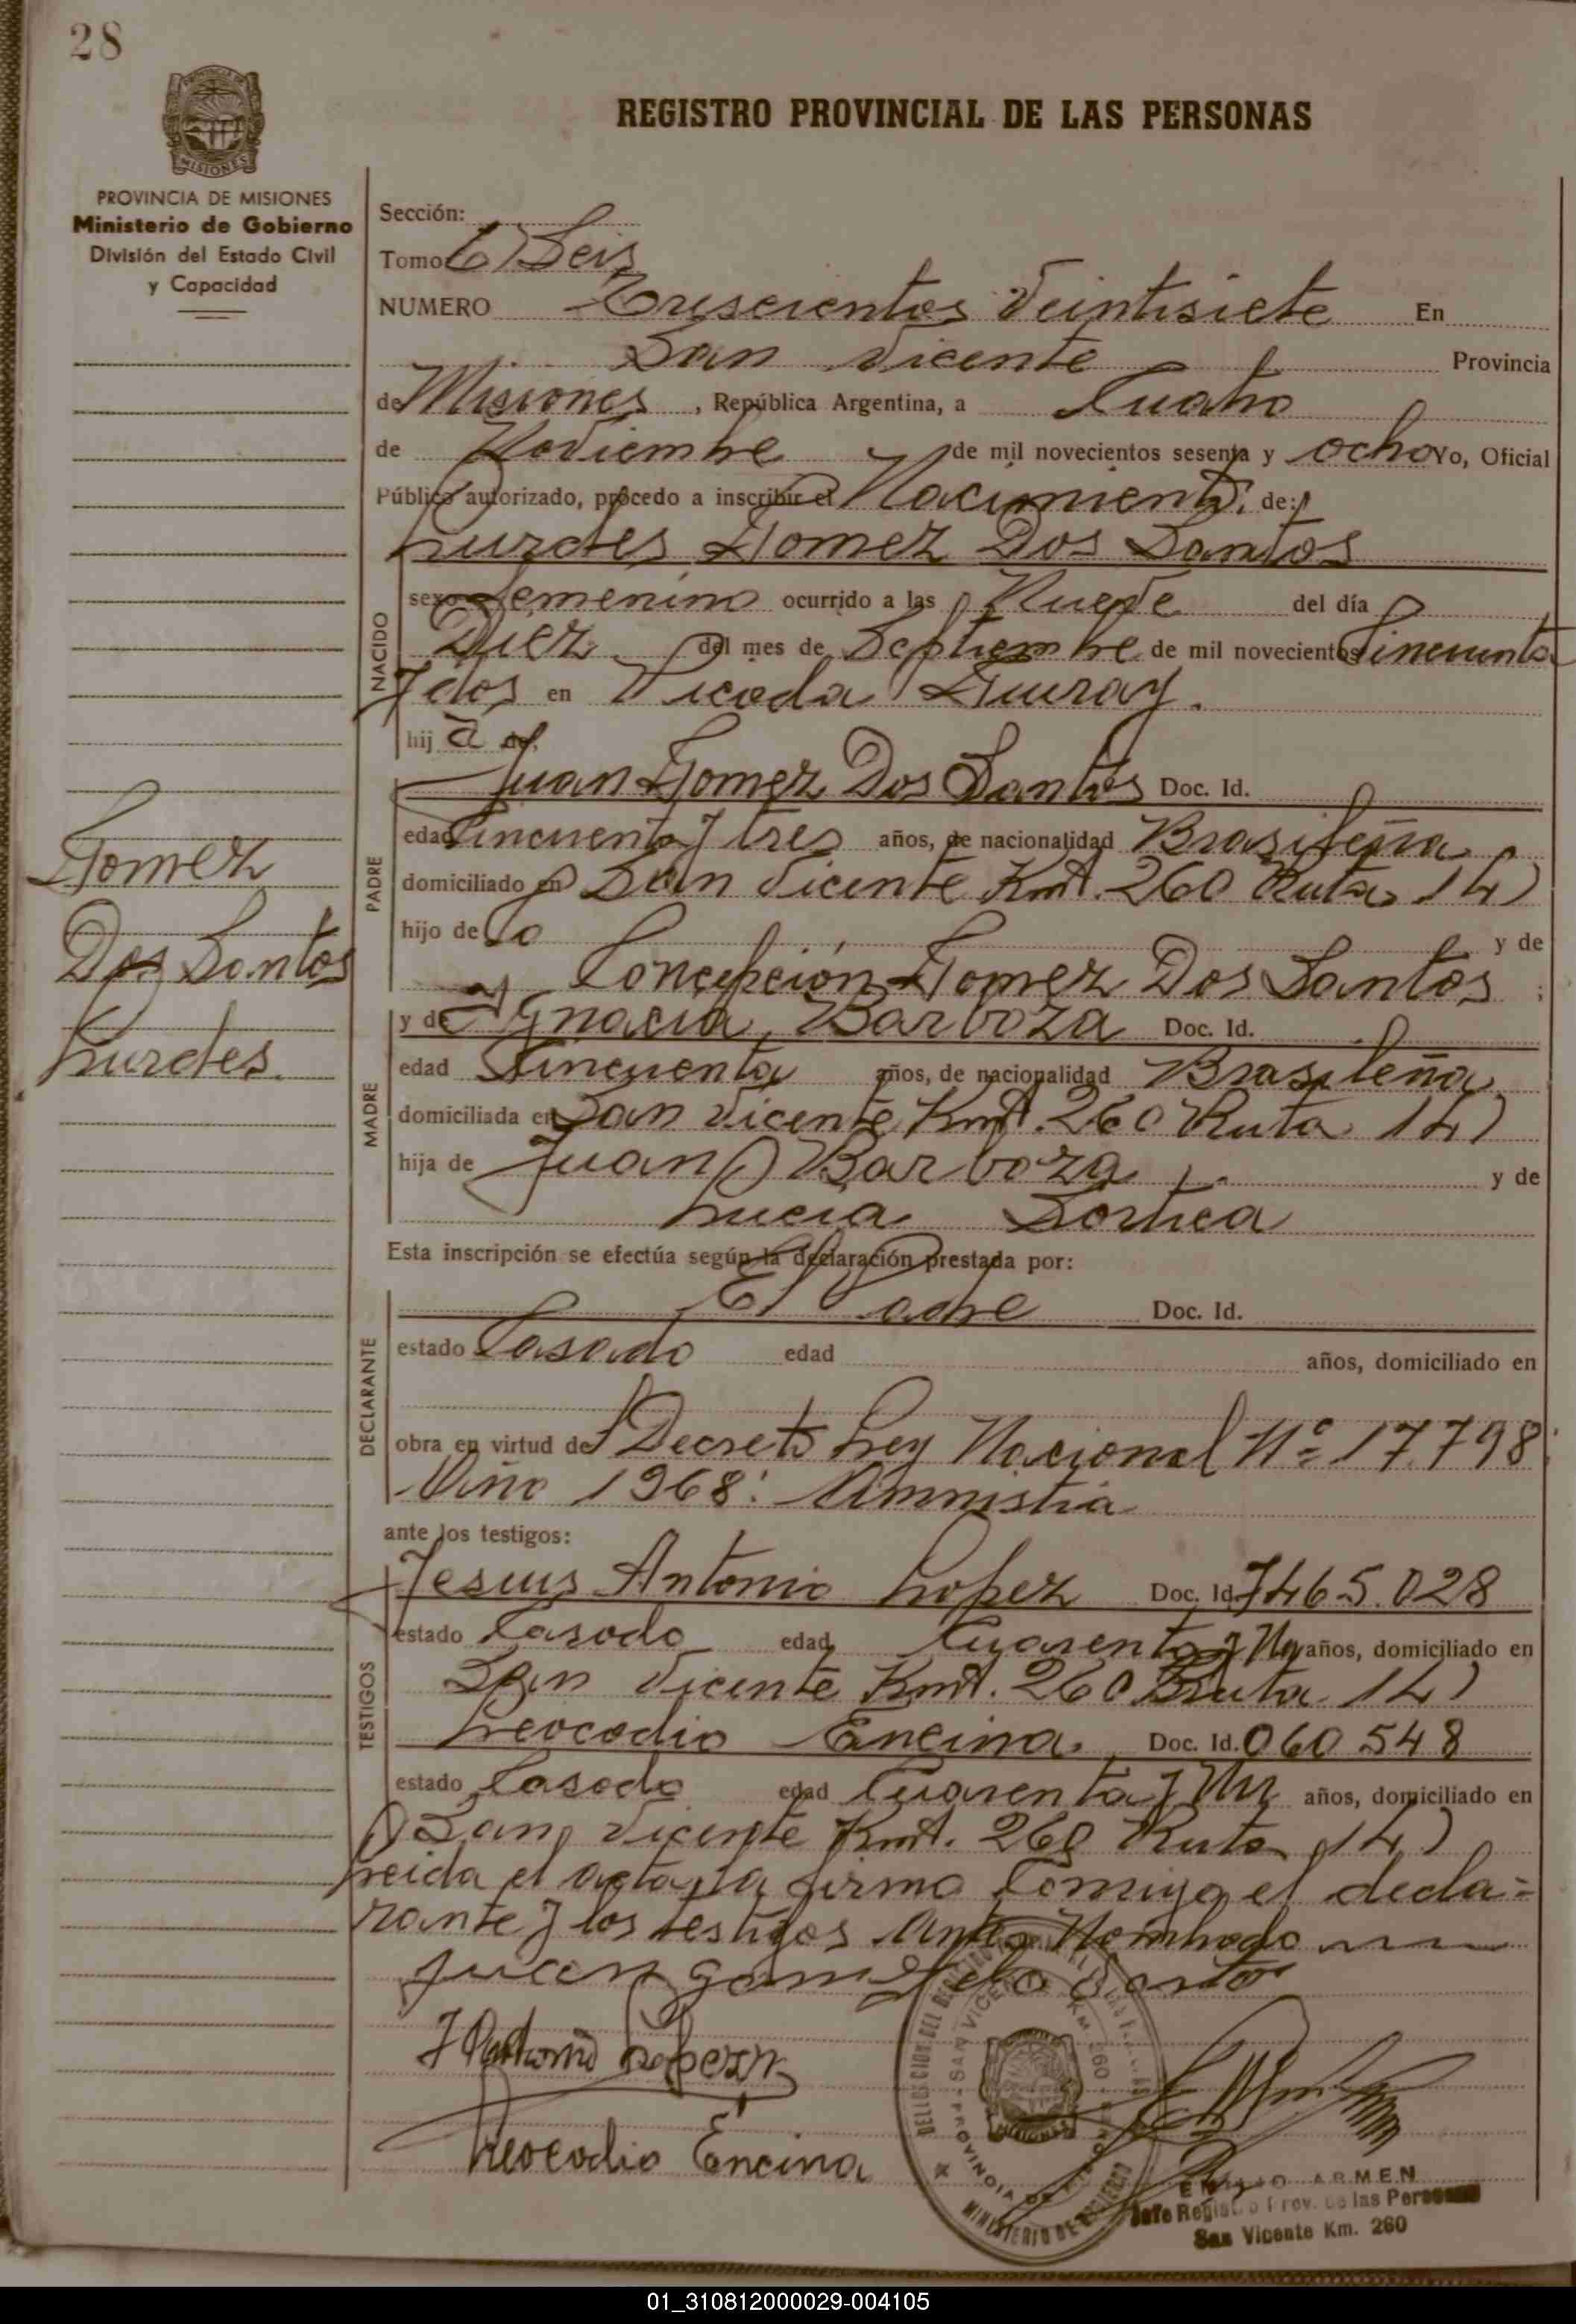 28
REGISTRO PROVINCIAL DE LAS PERSONAS
MISIONES
PROVINCIA DE MISIONES
Ministerio de Gobierno
División del Estado Civil
y Capacidad
Sección:
Tomo 6) Seis
NUMERO Trescientos Veintisiete En
San Vicente Provincia
de Misiones, República Argentina, a Cuatro
de Noviembre de mil novecientos sesenta y ocho Yo, Oficial
Público autorizado, procedo a inscribir el Nacimiento de:
Lurdes Gomez Dos Santos
NACIDO
sexo Femenino ocurrido a las Nueve del día
Diez del mes de Septiembre de mil novecientos Cincuenta
y dos en Picada Guuray.
hij a de,
Gomez
Dos Santos
Lurdes.
PADRE
Juan Gomez Dos Santos Doc. Id.
edad Cincuenta y tres años, de nacionalidad Brasileña
domiciliado en San Vicente Kmt. 260 Ruta 14)
hijo de y de
Concepción Gomez Dos Santos ;
MADRE
y de Ygnacia Barboza Doc. Id.
edad Cincuenta años, de nacionalidad Brasileña
domiciliada en San Vicente Kmt. 260 Ruta 14)
hija de Juan Barboza y de
Lucia Sortica
Esta inscripción se efectúa según la declaración prestada por:
DECLARANTE
El Padre Doc. Id.
estado Casado edad años, domiciliado en
obra en virtud de Decreto Ley Nacional Nº 17.798
Año 1968: Amnistia
ante los testigos:
TESTIGOS
Jesus Antonio Lopez Doc. Id. 7465.028
estado Casado edad Cuarenta y Un años, domiciliado en
San Vicente Kmt. 260 Ruta 14)
Leocadio Encina. Doc. Id. 060548
estado Casado edad Cuarenta y Un años, domiciliado en
San Vicente Kmt. 260 Ruta 14)
Leida el acta la firma Comigo el decla=
rante y los testigos Antes Nombrado
Juan gomez do santo
J Antonio Lopez
Leocadio Encina
SAN VICENTE KM. 260
PROVINCIA DE MISIONES
MINISTERIO DE GOBIERNO
EMILIO ARMEN
Jefe Registro Prov. de las Personas
San Vicente Km. 260
01_310812000029-004105